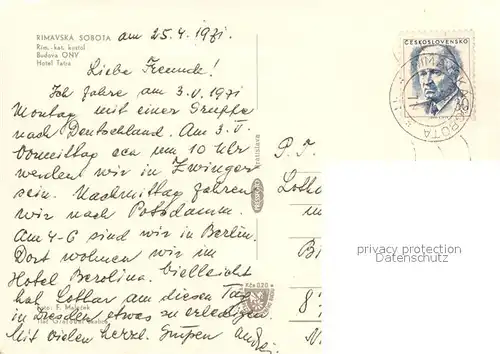 RIMAVSKÁ SOBOTA
am 25.4.1971.
Rím.-kat. kostol
Budova ONV
Hotel Tatra
ČESKOSLOVENSKO
Liebe Freunde!
Ich fahre am 3.V.1971
Montag mit einer Gruppe
nach Deutschland. Am 3.V.
Vormittag cca um 10 Uhr
werden wir in Zwinger
sein. Nachmittag fahren
wir nach Potsdamm.
Am 4-6 sind wir in Berlin.
Dort wohnen wir im
Hotel Berolina. Vielleicht
hat Lothar am diesen Tag
in Dresden etwas zu erledigen.
Mit vielen herzl. Grüßen
P. T.
Loth
Bi
privacy protection